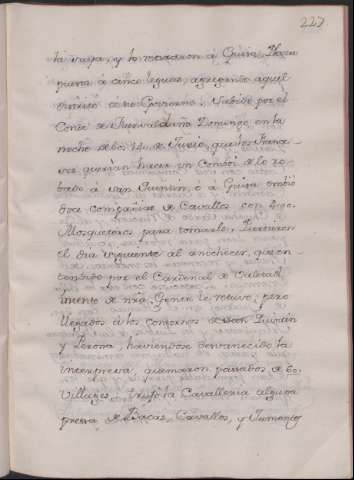 227
la vaya, y lo        à Guisa, Plaza
puerta à cinco leguas, agregando aquel
       à su Govierno. Sabido por el
Conde de Fuensaldaña Domingo en la
noche de los 24 de Junio, que los France-
ses querian hacer un Comboi de lo ro-
bado à San Quintin, ò à Guisa embió
doce compañias de Cavallos con 200
Mosqueteros para tomarlo. Partieron
el dia siguiente al anochecer, que en-
tendido por el Cardenal de
miento de nra. Gente le retuvo; pero
llegados à los contornos de San Quintin
y Perona, haviendose desvanecido la
interpresa, quemaron pasados de 20
Villages. Trujo la Cavalleria alguna
presa de Bacas, Cavallos, y Jumentos